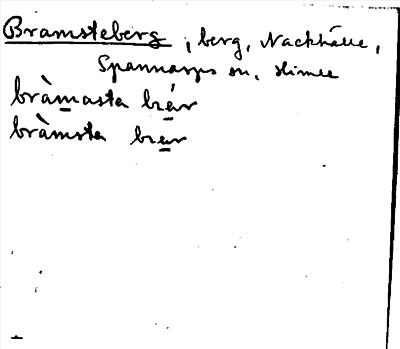 Bramsteberg, berg, Nackhälle,
Spannarps sn, Himle
bràmasta bɛ́r
bràmsta bɛr